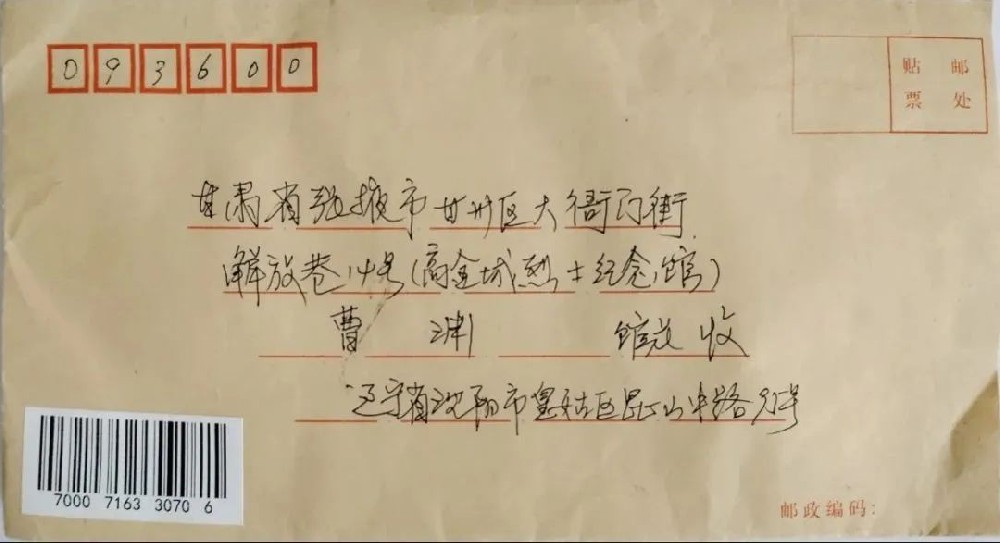 093600
贴 邮
票 处
甘肃省张掖市甘州区大衙门街
解放巷14号(高金城烈士纪念馆)
曹 渊 馆 收
辽宁省沈阳市皇姑区昆山中路 号
7000 7163 3070 6
邮政编码: